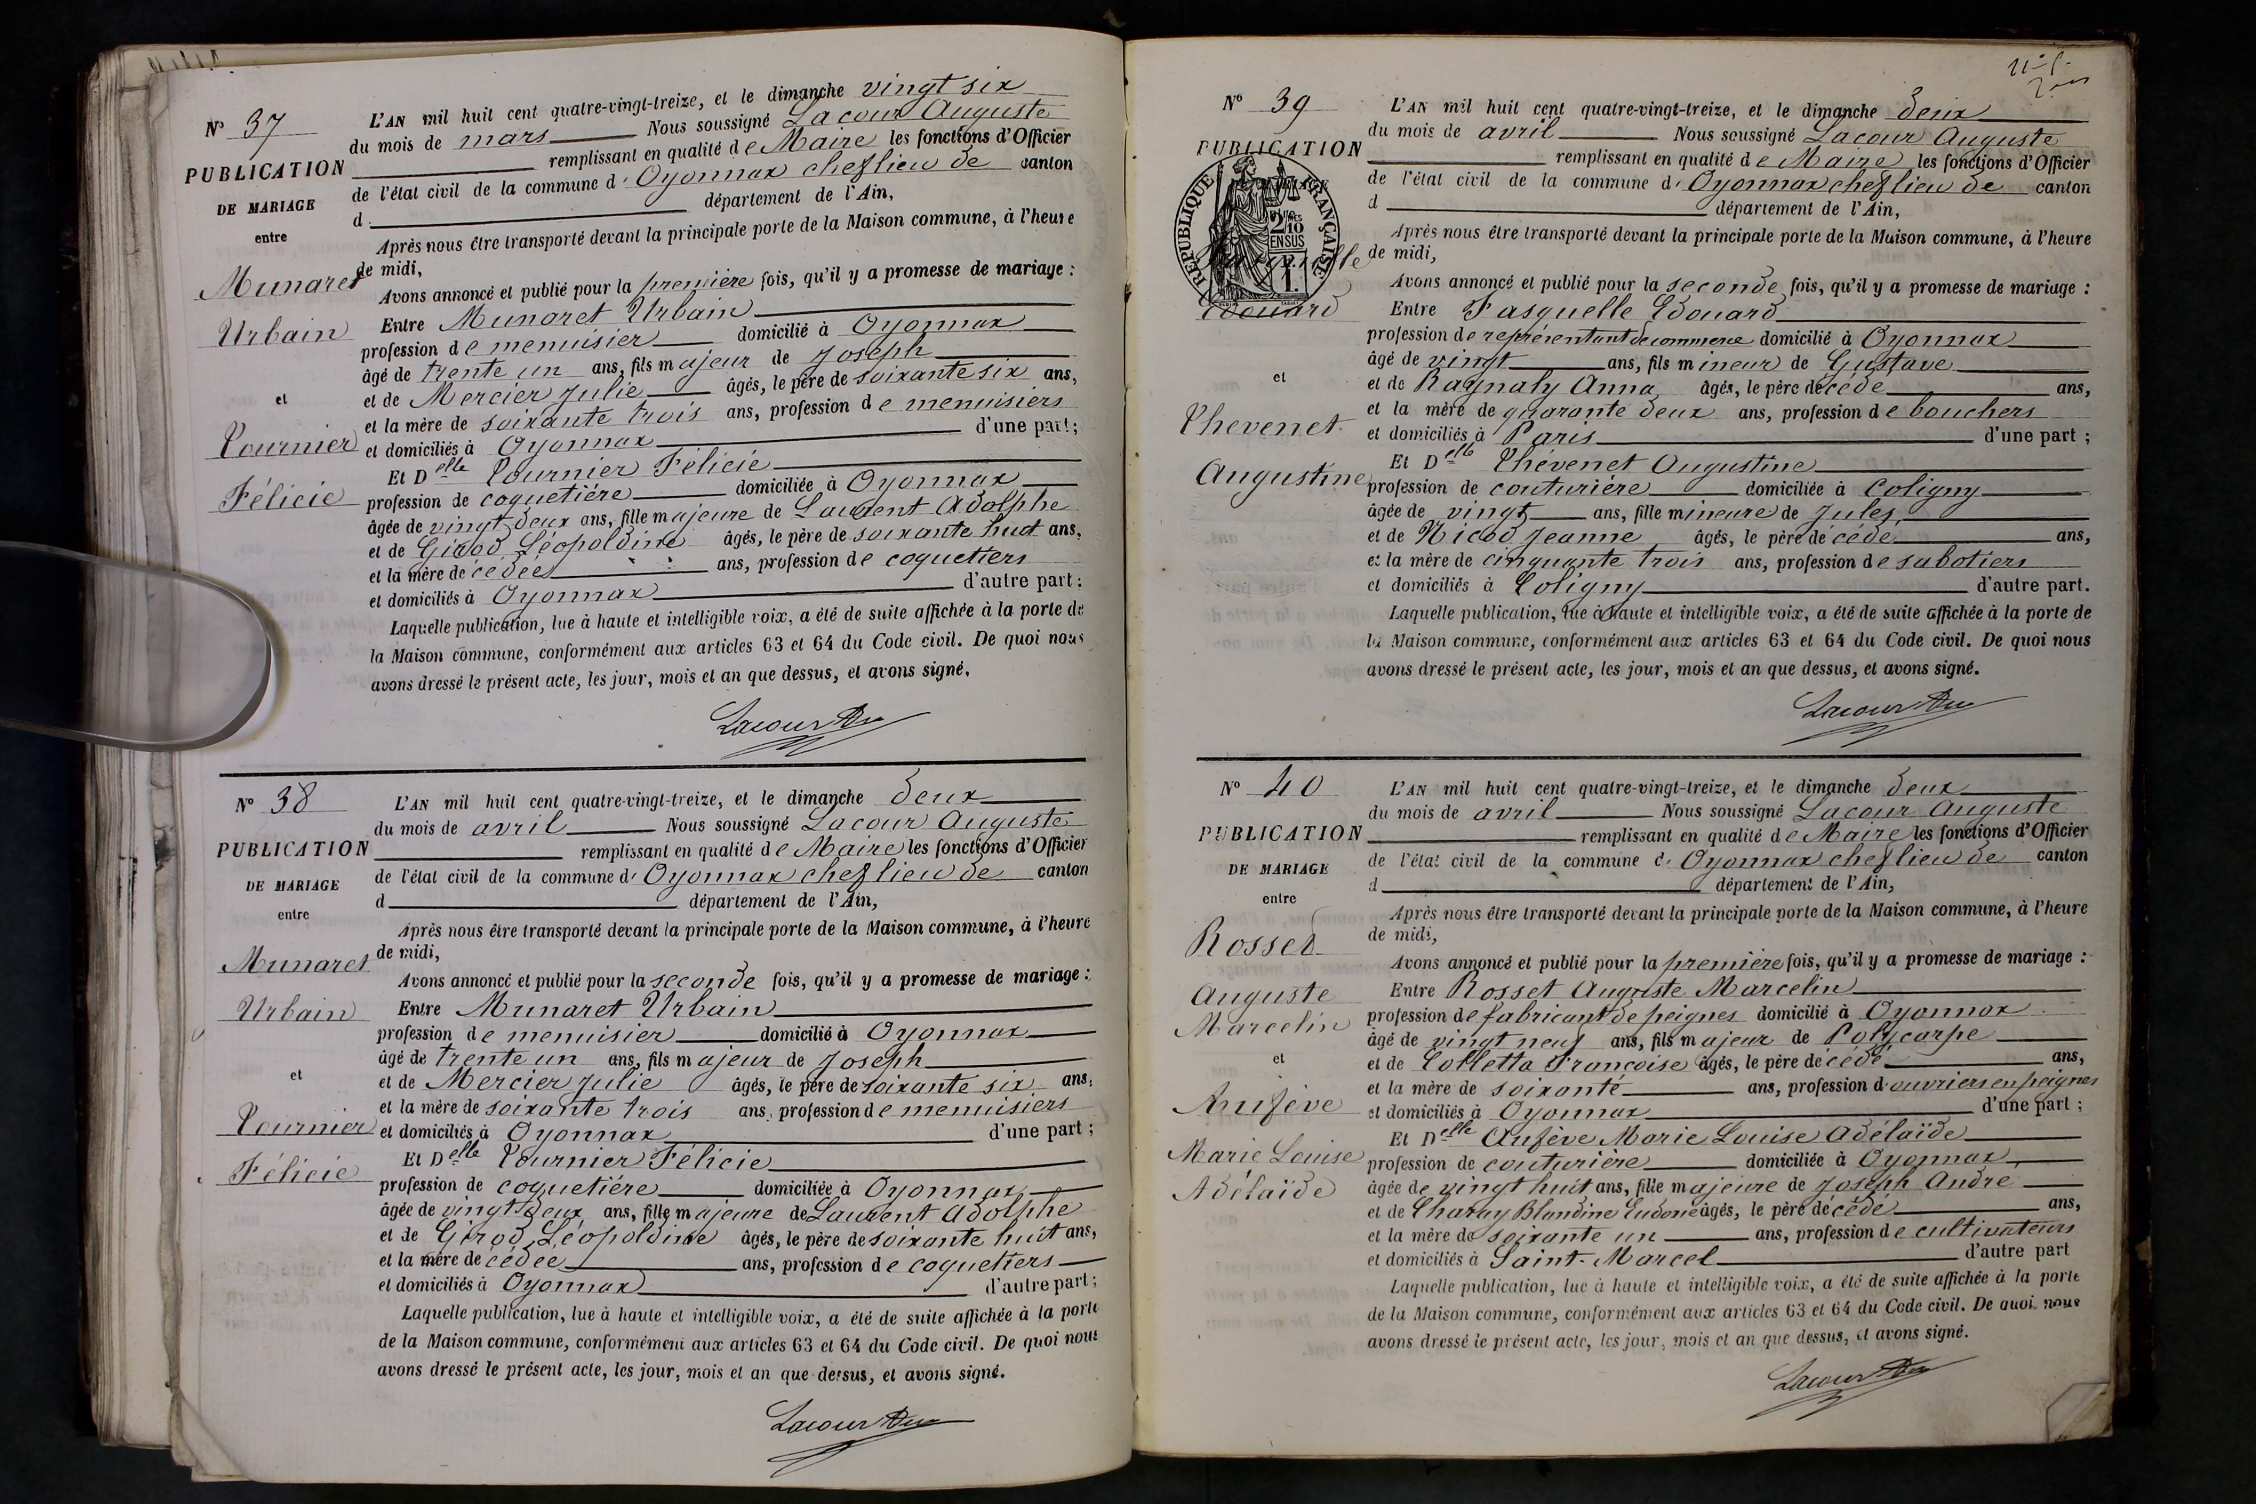 N° 37
PUBLICATION
DE MARIAGE
entre
Munaret
Urbain
et
Tournier
Félicie
L'AN mil huit cent quatre-vingt-treize, et le dimanche vingt six
du mois de mars Nous soussigné Lacour Auguste
remplissant en qualité de Maire les fonctions d'Officier
de l'état civil de la commune d'Oyonnax chef lieu de canton
d département de l'Ain,
Après nous être transporté devant la principale porte de la Maison commune, à l'heure
de midi,
Avons annoncé et publié pour la première fois, qu'il y a promesse de mariage :
Entre Munaret Urbain
profession de menuisier domicilié à Oyonnax
âgé de trente un ans, fils majeur de Joseph
et de Mercier Julie âgés, le père de soixante six ans,
et la mère de soixante trois ans, profession de menuisiers
et domiciliés à Oyonnax d'une part;
Et Delle Tournier Félicie
profession de coquetière domiciliée à Oyonnax
âgée de vingt deux ans, fille majeure de Laurent Adolphe
et de Girod Léopoldine âgés, le père de soixante huit ans,
et la mère décédée ans, profession de coquetiers
et domiciliés à Oyonnax d'autre part;
Laquelle publication, lue à haute et intelligible voix, a été de suite affichée à la porte de
la Maison commune, conformément aux articles 63 et 64 du Code civil. De quoi nous
avons dressé le présent acte, les jour, mois et an que dessus, et avons signé.
Lacour Au
N° 38
PUBLICATION
DE MARIAGE
entre
Munaret
Urbain
et
Tournier
Félicie
L'AN mil huit cent quatre-vingt-treize, et le dimanche deux
du mois de avril Nous soussigné Lacour Auguste
remplissant en qualité de Maire les fonctions d'Officier
de l'état civil de la commune d'Oyonnax chef lieu de canton
d département de l'Ain,
Après nous être transporté devant la principale porte de la Maison commune, à l'heure
de midi,
Avons annoncé et publié pour la seconde fois, qu'il y a promesse de mariage :
Entre Munaret Urbain
profession de menuisier domicilié à Oyonnax
âgé de trente un ans, fils majeur de Joseph
et de Mercier Julie âgés, le père de soixante six ans,
et la mère de soixante trois ans, profession de menuisiers
et domiciliés à Oyonnax d'une part ;
Et Delle Tournier Félicie
profession de coquetière domiciliée à Oyonnax
âgée de vingt deux ans, fille majeure de Laurent Adolphe
et de Girod Léopoldine âgés, le père de soixante huit ans,
et la mère décédée ans, profession de coquetiers
et domiciliés à Oyonnax d'autre part;
Laquelle publication, lue à haute et intelligible voix, a été de suite affichée à la porte
de la Maison commune, conformément aux articles 63 et 64 du Code civil. De quoi nous
avons dressé le présent acte, les jour, mois et an que dessus, et avons signé.
Lacour Au
N° 39
PUBLICATION
RÉPUBLIQUE FRANÇAISE
2/10 EN SUS
Edouard
et
Thevenet
Augustine
L'AN mil huit cent quatre-vingt-treize, et le dimanche deux
du mois de avril Nous soussigné Lacour Auguste
remplissant en qualité de Maire les fonctions d'Officier
de l'état civil de la commune d'Oyonnax chef lieu de canton
d département de l'Ain,
Après nous être transporté devant la principale porte de la Maison commune, à l'heure
de midi,
Avons annoncé et publié pour la seconde fois, qu'il y a promesse de mariage :
Entre Fasquelle Edouard
profession de représentant de commerce domicilié à Oyonnax
âgé de vingt ans, fils mineur de Gustave
et de Raynaly Anna âgés, le père décédé ans,
et la mère de quarante deux ans, profession de bouchers
et domiciliés à Paris d'une part ;
Et Delle Thévenet Augustine
profession de couturière domiciliée à Coligny
âgée de vingt ans, fille mineure de Jules
et de Nicod Jeanne âgés, le père décédé ans,
et la mère de cinquante trois ans, profession de sabotiers
et domiciliés à Coligny d'autre part.
Laquelle publication, lue à haute et intelligible voix, a été de suite affichée à la porte de
la Maison commune, conformément aux articles 63 et 64 du Code civil. De quoi nous
avons dressé le présent acte, les jour, mois et an que dessus, et avons signé.
Lacour Au
N° 40
PUBLICATION
DE MARIAGE
entre
Rosset
Auguste
Marcelin
et
Anfève
Marie Louise
Adélaïde
L'AN mil huit cent quatre-vingt-treize, et le dimanche deux
du mois de avril Nous soussigné Lacour Auguste
remplissant en qualité de Maire les fonctions d'Officier
de l'état civil de la commune d'Oyonnax chef lieu de canton
d département de l'Ain,
Après nous être transporté devant la principale porte de la Maison commune, à l'heure
de midi,
Avons annoncé et publié pour la première fois, qu'il y a promesse de mariage :
Entre Rosset Auguste Marcelin
profession de fabricant de peignes domicilié à Oyonnax
âgé de vingt neuf ans, fils majeur de Polycarpe
et de Colletta Françoise âgés, le père décédé ans,
et la mère de soixante ans, profession d'ouvriers en peignes
et domiciliés à Oyonnax d'une part ;
Et Delle Anfève Marie Louise Adélaïde
profession de couturière domiciliée à Oyonnax
âgée de vingt huit ans, fille majeure de Joseph André
et de Blandine âgés, le père décédé ans,
et la mère de soixante un ans, profession de cultivateurs
et domiciliés à Saint-Marcel d'autre part
Laquelle publication, lue à haute et intelligible voix, a été de suite affichée à la porte
de la Maison commune, conformément aux articles 63 et 64 du Code civil. De quoi nous
avons dressé le présent acte, les jour, mois et an que dessus, et avons signé.
Lacour Au